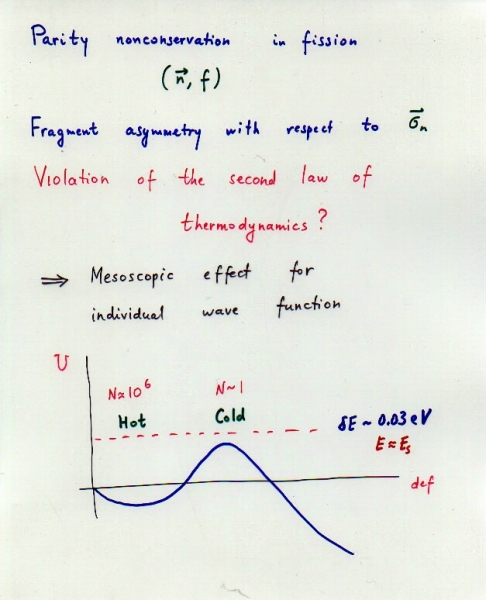 Parity nonconservation in fission
(n⃗, f)
Fragment asymmetry with respect to σ⃗ₙ
Violation of the second law of
thermodynamics?
⇒ Mesoscopic effect for
individual wave function
U
N≈10⁶ N~1
Hot Cold
δE ~ 0.03 eV
E ≈ Eₛ
def